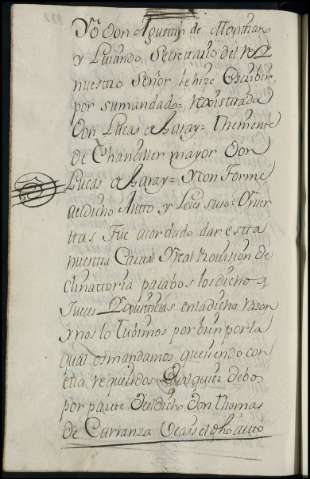 Yo Don Agustin de Montiano
y Luiando Secretario del Rey
nuestro Señor le hize escribir
por su mandado = rexistrada
Don Lucas de Garay = Theniente
de Chanciller mayor Don
Lucas de Garay = Y conforme
al dicho Auto y Leyes suso
Fue acordado dar esta
nuestra Carta Real Provision de
clinatoria para bos los dichos
Jueces en la dicha razon
y nos lo tubimos por bien por la
qual os mandamos que siendo con
ella requeridos qualquier de bos
por parte del dicho Don Thomas
de Carranza veais el dho auto